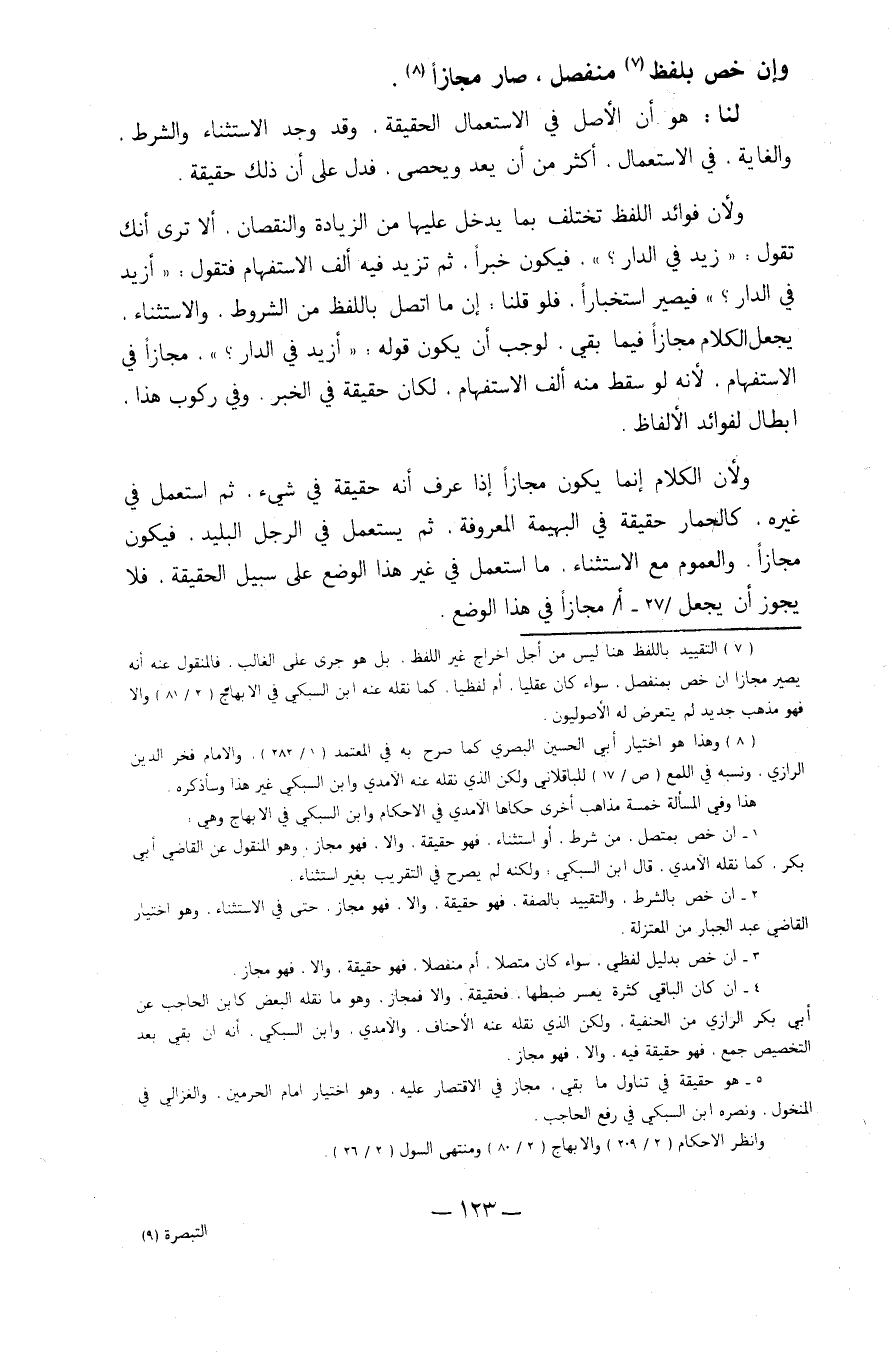 وإن خص بلفظ (٧) منفصل ، صار مجازاً (٨) .
لنا : هو أن الأصل في الاستعمال الحقيقة . وقد وجد الاستثناء والشرط .
والغاية . في الاستعمال . أكثر من أن يعد ويحصى . فدل على أن ذلك حقيقة .
ولأن فوائد اللفظ تختلف بما يدخل عليها من الزيادة والنقصان . ألا ترى أنك
تقول : « زيد في الدار ؟ » . فيكون خبراً . ثم تزيد فيه ألف الاستفهام فتقول : « أزيد
في الدار ؟ » فيصير استخباراً . فلو قلنا : إن ما اتصل باللفظ من الشروط . والاستثناء .
يجعل الكلام مجازاً فيما بقي . لوجب أن يكون قوله : « أزيد في الدار ؟ » . مجازاً في
الاستفهام . لأنه لو سقط منه ألف الاستفهام . لكان حقيقة في الخبر . وفي ركوب هذا .
ابطال لفوائد الألفاظ .
ولأن الكلام إنما يكون مجازاً إذا عرف أنه حقيقة في شيء . ثم استعمل في
غيره . كالحمار حقيقة في البهيمة المعروفة . ثم يستعمل في الرجل البليد . فيكون
مجازاً . والعموم مع الاستثناء . ما استعمل في غير هذا الوضع على سبيل الحقيقة . فلا
يجوز أن يجعل /٢٧ ـ أ/ مجازاً في هذا الوضع .
( ٧ ) التقييد باللفظ هنا ليس من أجل اخراج غير اللفظ . بل هو جرى على الغالب . فالمنقول عنه أنه
يصير مجازا ان خص بمنفصل . سواء كان عقليا . أم لفظيا . كما نقله عنه ابن السبكي في الابهاج ( ٢ / ٨١ ) والا
فهو مذهب جديد لم يتعرض له الأصوليون .
( ٨ ) وهذا هو اختيار أبي الحسين البصري كما صرح به في المعتمد ( ١ / ٢٨٢ ) . والامام فخر الدين
الرازي . ونسبه في اللمع ( ص / ١٧ ) للباقلاني ولكن الذي نقله عنه الآمدي وابن السبكي غير هذا وسأذكره .
هذا وفي المسألة خمسة مذاهب أخرى حكاها الآمدي في الاحكام وابن السبكي في الابهاج وهي :
١ ـ ان خص بمتصل . من شرط . أو استثناء . فهو حقيقة . والا . فهو مجاز . وهو المنقول عن القاضي أبي
بكر . كما نقله الآمدي . قال ابن السبكي : ولكنه لم يصرح في التقريب بغير استثناء .
٢ ـ ان خص بالشرط . والتقييد بالصفة . فهو حقيقة . والا . فهو مجاز . حتى في الاستثناء . وهو اختيار
القاضي عبد الجبار من المعتزلة .
٣ ـ ان خص بدليل لفظي . سواء كان متصلا . أم منفصلا . فهو حقيقة . والا . فهو مجاز .
٤ ـ ان كان الباقي كثرة يعسر ضبطها . فحقيقة . والا فمجاز . وهو ما نقله البعض كابن الحاجب عن
أبي بكر الرازي من الحنفية . ولكن الذي نقله عنه الأحناف . والآمدي . وابن السبكي . أنه ان بقي بعد
التخصيص جمع . فهو حقيقة فيه . والا . فهو مجاز .
٥ ـ هو حقيقة في تناول ما بقي . مجاز في الاقتصار عليه . وهو اختيار امام الحرمين . والغزالي في
المنخول . ونصره ابن السبكي في رفع الحاجب .
وانظر الاحكام ( ٢ / ٢٠٩ ) والابهاج ( ٢ / ٨٠ ) ومنتهى السول ( ٢ / ٢٦ ) .
ـ ١٢٣ ـ
التبصرة (٩)